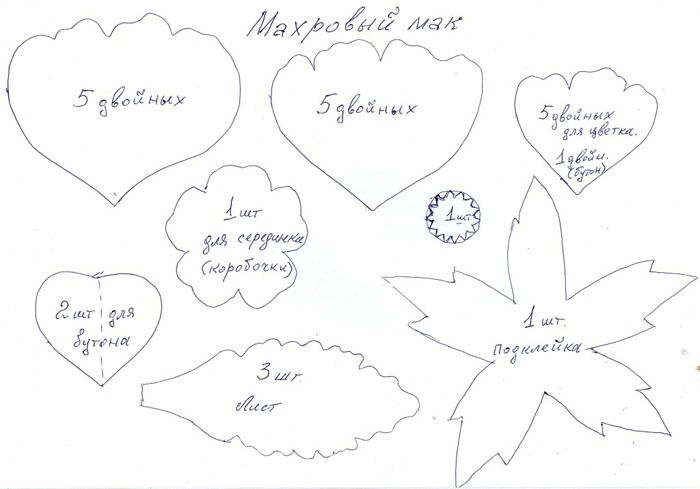 Махровый мак
5 двойных
5 двойных
5 двойных
для цветка.
1 двойн.
(бутон)
1 шт
для серединка
(коробочки)
1 шт
2 шт для
бутона
1 шт.
подклейка
3 шт.
Лист